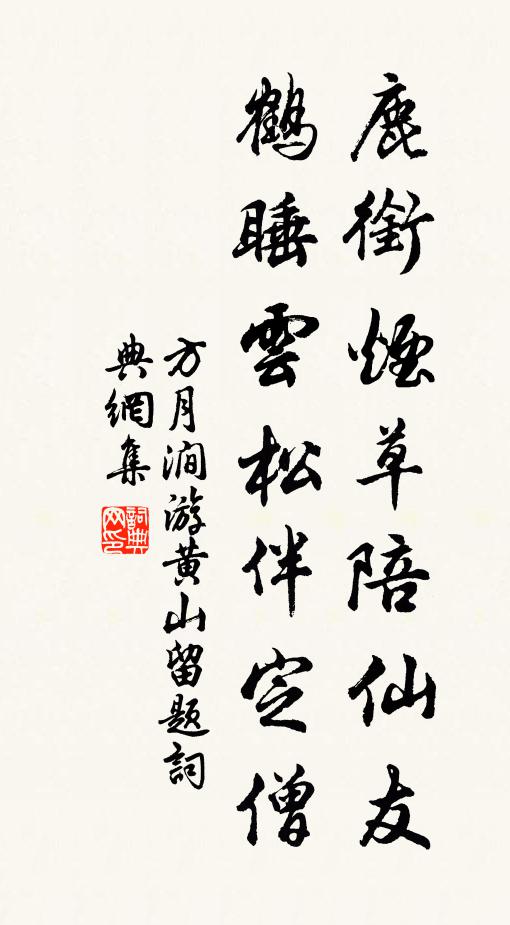 鹿銜煙草陪仙友
鶴睡雲松伴定僧
方月澗游黄山留題詞
典網集
詞典網印